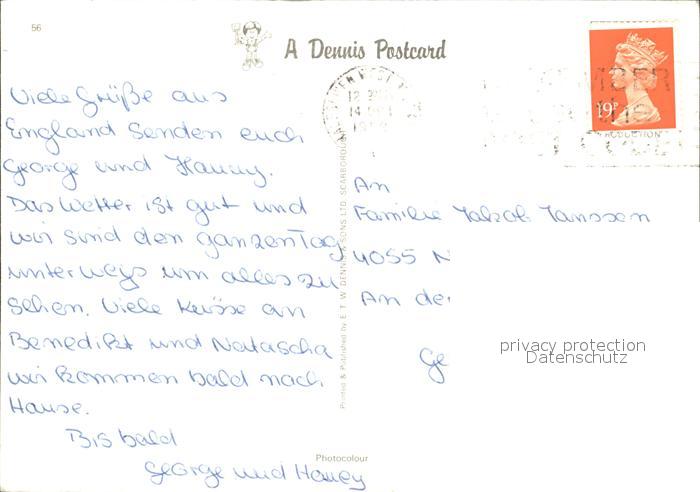 56
A Dennis Postcard
12 30PM
14
19P
Viele Grüße aus
England senden euch
George und Hanny.
Das Wetter ist gut und
wir sind den ganzen Tag
unterwegs um alles zu
sehen. Viele Küsse an
Benedikt und Natascha
wir kommen bald nach
Hause.
Bis bald
George und Haney
Printed & Published by E. T. W. DENNIS & SONS LTD. SCARBOROUGH
Photocolour
An
Familie Jakob Janssen
4055 N
An de
Ge
privacy protection
Datenschutz